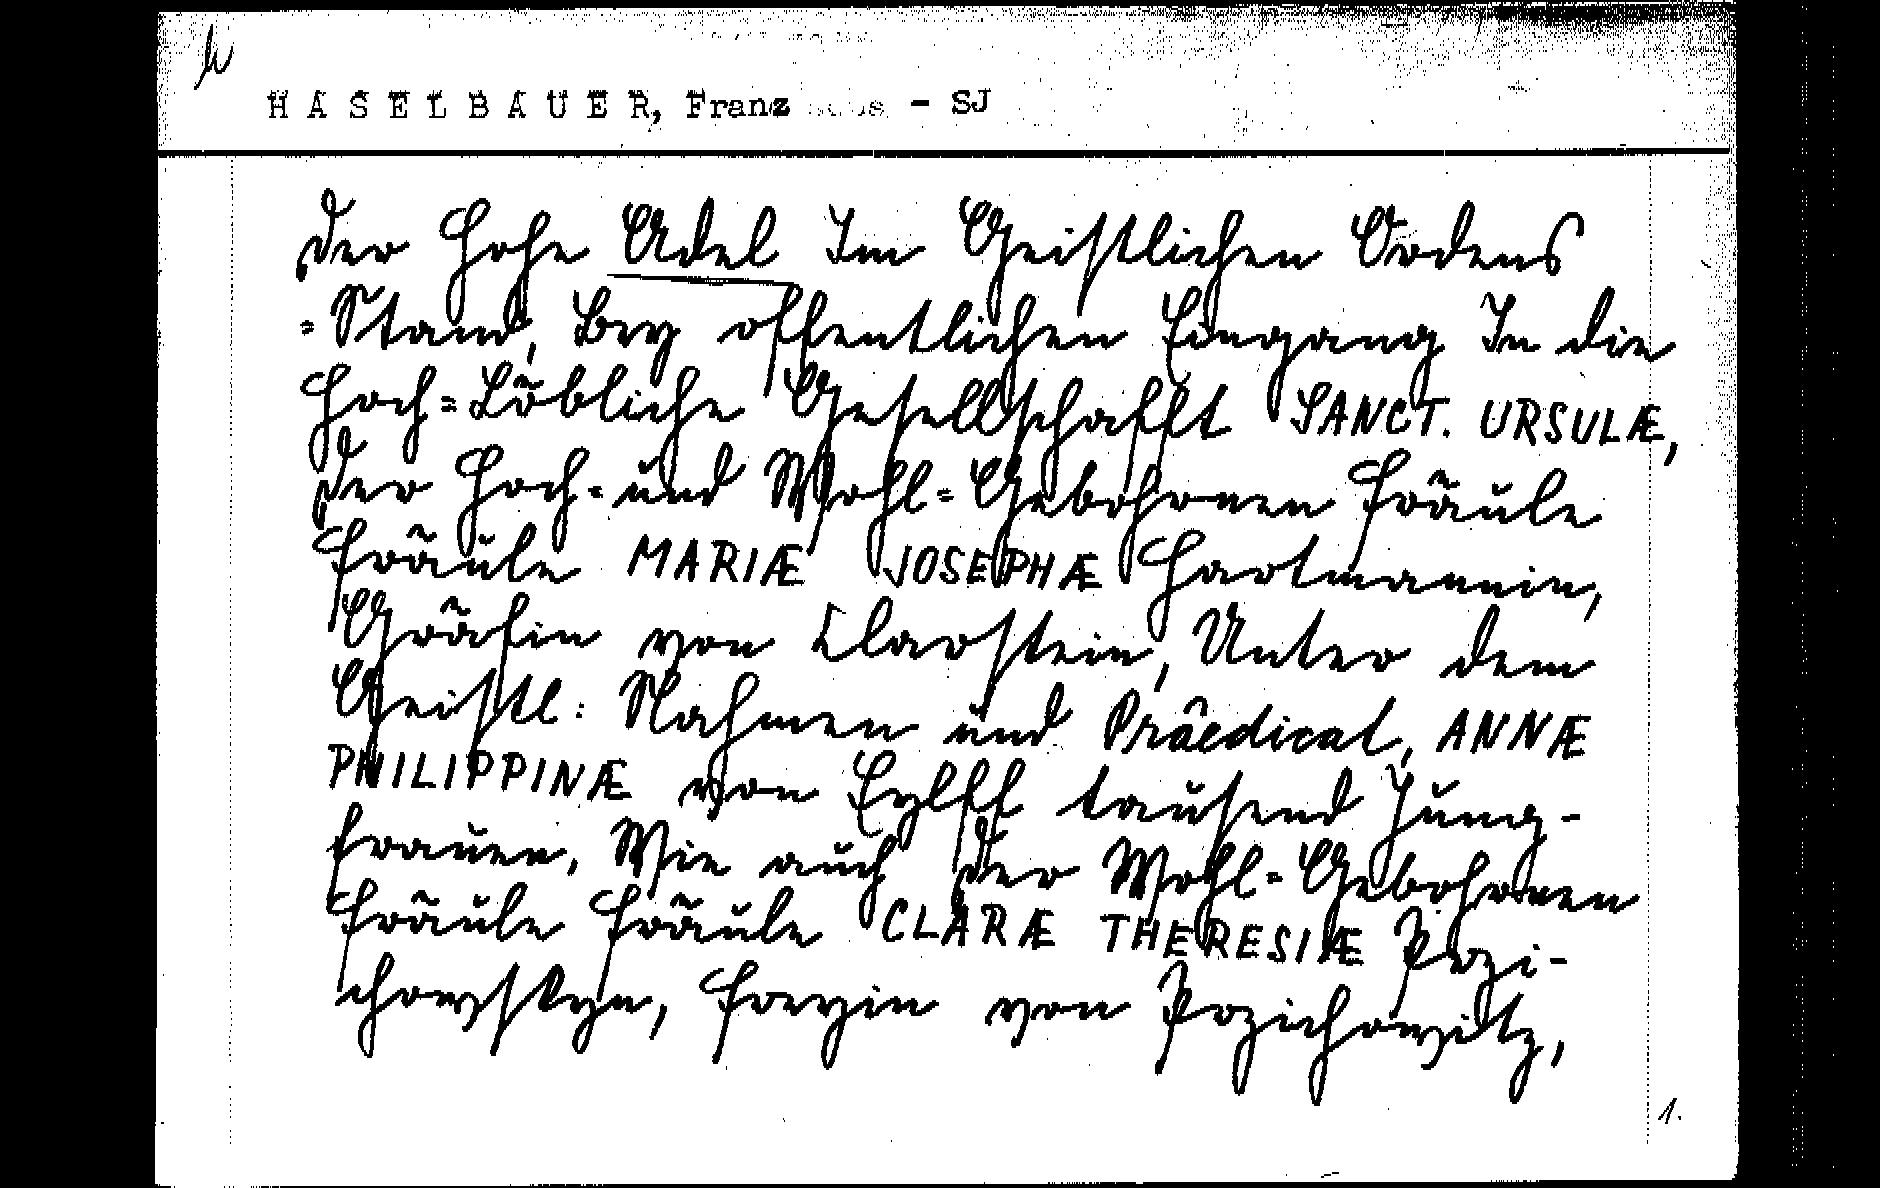 HASELBAUER, Franz - SJ
Der Hohe Adel Im Geistlichen Ordens
=Stand, Bey offentlichen Eingang In die
Hoch=Löbliche Gesellschafft SANCT. URSULÆ,
Der Hoch= und Wohl=Gebohrnen Fräule
Fräule MARIÆ JOSEPHÆ Hartmannin,
Gräfin von Clarstein, Unter dem
Geistl: Nahmen und Präedicat, ANNÆ
PHILIPPINÆ von Eylff tausend Jung-
frauen, Wie auch Der Wohl=Gebohrnen
Fräule Fräule CLARÆ THERESIÆ Przi-
chowskyn, Freyin von Przichowitz,
1.